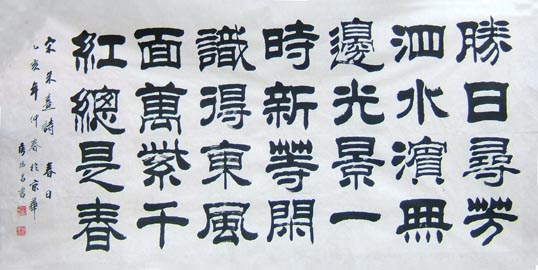 勝日尋芳
泗水濱無
邊光景一
時新等閑
識得東風
面萬紫千
紅總是春
宋朱熹詩 春日
乙亥年仲春於京華
書